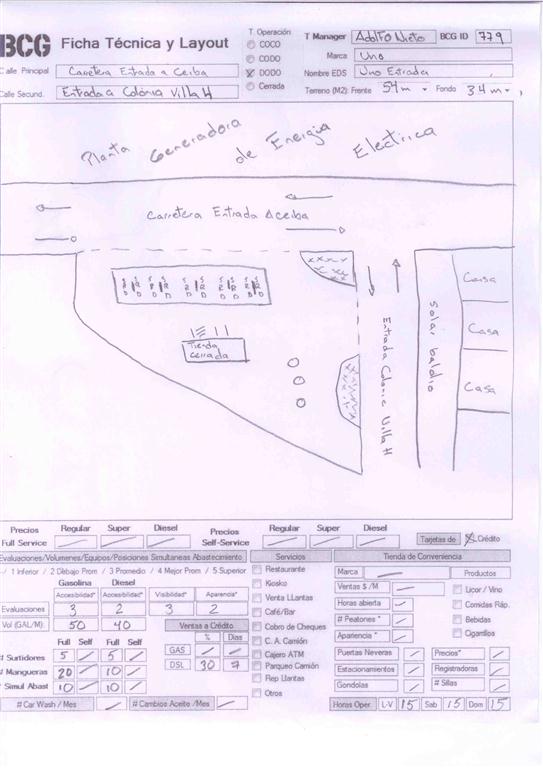 BCG Ficha Técnica y Layout
T. Operación
COCO
CODO
DODO
Cerrada
T Manager Adolfo Nieto BCG ID 779
Marca Uno
Nombre EDS Uno Entrada
Terreno (M2): Frente 54m Fondo 34m
Calle Principal Carretera Entrada a Ceiba
Calle Secund. Entrada a Colonia Villa H
Planta Generadora de Energia Electrica
Carretera Entrada Aceiba
S S S S S S S S
R R R R R R R R
D D D D D D D D
Tienda cerrada
Entrada Colonia Villa H
Solar baldio
Casa
Casa
Casa
Precios Regular Super Diesel Precios Regular Super Diesel
Full Service Self-Service Tarjetas de Crédito
Evaluaciones/Volumenes/Equipos/Posiciones Simultaneas Abastecimiento
/ 1 Inferior / 2 Debajo Prom / 3 Promedio / 4 Mejor Prom / 5 Superior
Gasolina Diesel
Accesibilidad* Accesibilidad* Visibilidad* Aparencia*
Evaluaciones 3 2 3 2
Vol (GAL/M) 50 40 Ventas a Crédito
% Dias
Full Self Full Self GAS
# Surtidores 5 5 DSL 30 7
# Mangueras 20 10
# Simul Abast 10 10
# Car Wash / Mes # Cambios Aceite /Mes
Servicios
Restaurante
Kiosko
Venta LLantas
Café/Bar
Cobro de Cheques
C. A. Camión
Cajero ATM
Parqueo Camión
Rep Llantas
Otros
Tienda de Conveniencia
Marca Productos
Ventas $ /M Licor / Vino
Horas abierta Comidas Ráp.
# Peatones * Bebidas
Apariencia * Cigarrilos
Puertas Neveras Precios*
Estacionamientos Registradoras
Gondolas # Sillas
Horas Oper. L-V 15 Sab 15 Dom 15